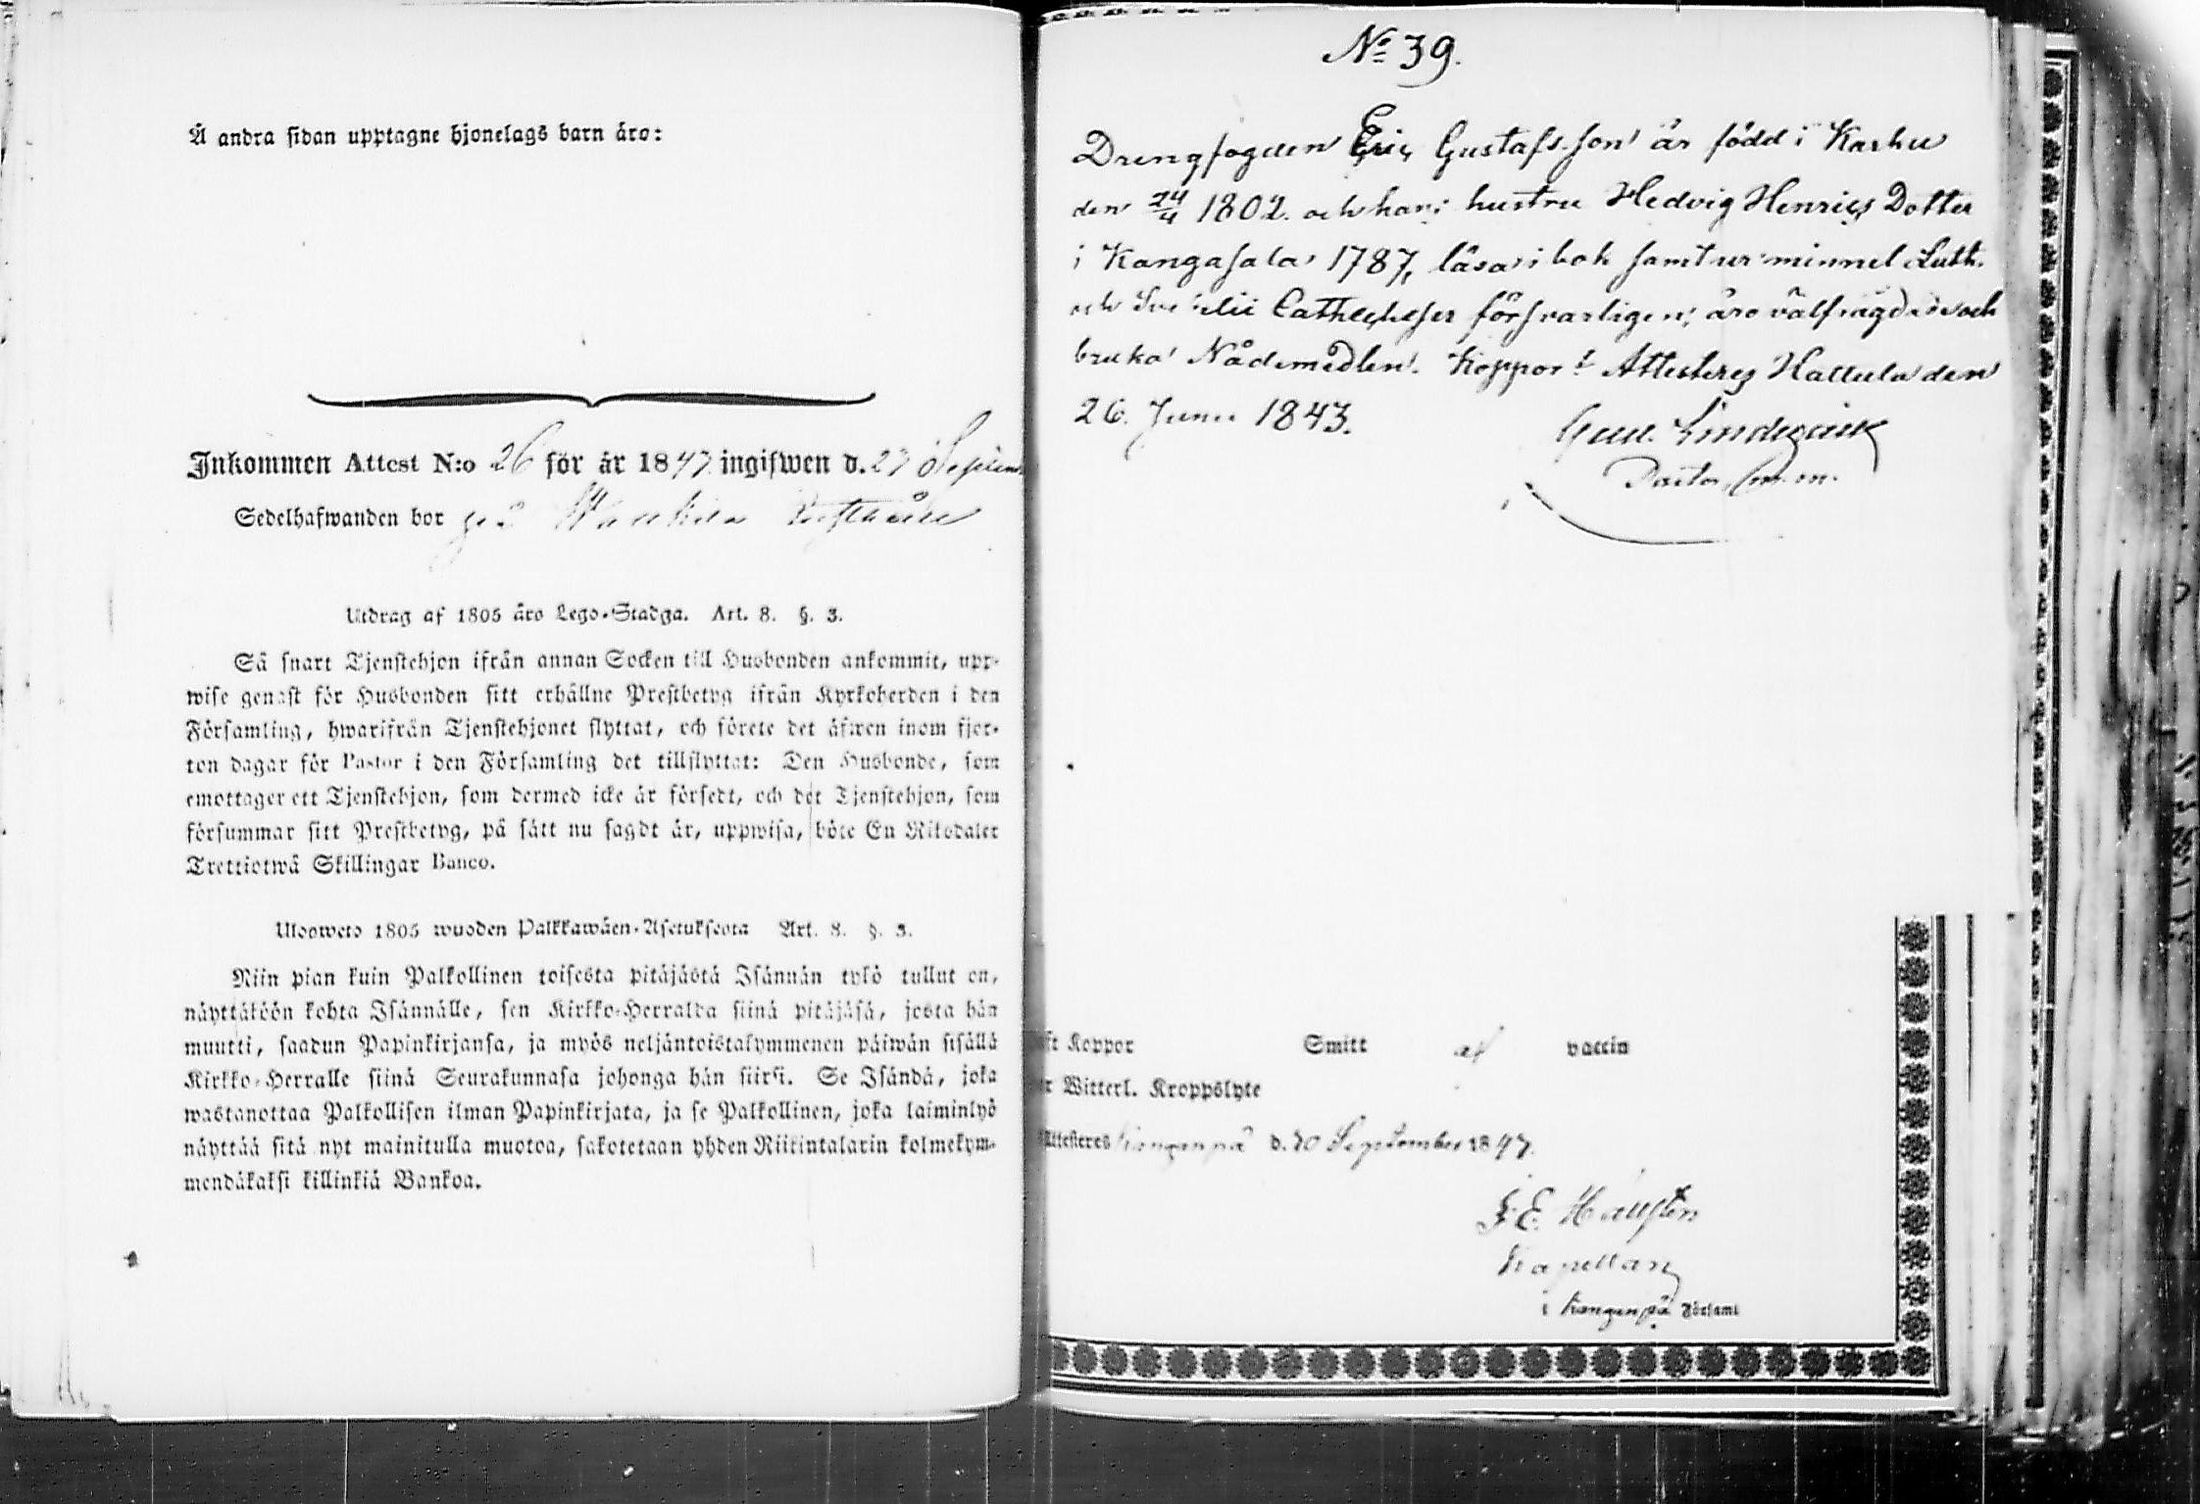 Å andra sidan upptagne hjonelags barn äro:
Inkommen Attest N:o 26 för år 1847 ingifwen d. 27 Septem
Sedelhafwanden bor på
Utdrag af 1805 års Lego-Stadga. Art. 8. §. 3.
Så snart Tjenstehjon ifrån annan Socken till Husbonden ankommit, upp-
wise genast för Husbonden sitt erhållne Prestbetyg ifrån Kyrkoherden i den
Församling, hwarifrån Tjenstehjonet flyttat, och förete det äfwen inom fjor-
ton dagar för Pastor i den Församling det tillflyttat: Den Husbonde, som
emottager ett Tjenstehjon, som dermed icke är försedt, och det Tjenstehjon, som
försummar sitt Prestbetyg, på sätt nu sagdt är, uppwisa, böte En Riksdaler
Trettiotwå Skillingar Banco.
Ulosweto 1805 wuoden Palkkawäen-Asetuksesta Art. 8. §. 3.
Niin pian kuin Palkollinen toisesta pitäjästä Isännän tykö tullut on,
näyttäköön kohta Isännälle, sen Kirkko-Herralda siinä pitäjäsä, josta hän
muutti, saadun Papinkirjansa, ja myös neljäntoistakymmenen päiwän sisällä
Kirkko-Herralle siinä Seurakunnasa johonga hän siirsi. Se Isändä, joka
wastanottaa Palkollisen ilman Papinkirjata, ja se Palkollinen, joka laiminlyö
näyttää sitä nyt mainitulla muotoa, sakotetaan yhden Riikintalarin kolmekym-
mendäkaksi killinkiä Bankoa.
No 39.
Drengfogden Eric Gustafsson är född i Karku
den 24/4 1802. och hans hustru Hedvig Henrics Dotter
i Kangasala 1787, läsa i bok samt ur minnet Luth.
och Svebelii Cathecheser försvarligen; äro välfrägdade och
bruka Nådemedlen. Koppor t Attesteres Hattula den
26. Junii 1843.
Pastor
ft Koppor Smitt af vaccin
r Witterl. Kroppslyte
Attesteres Kangenpä d. 20 September 1847.
Kapellan
i Kangenpä Församl